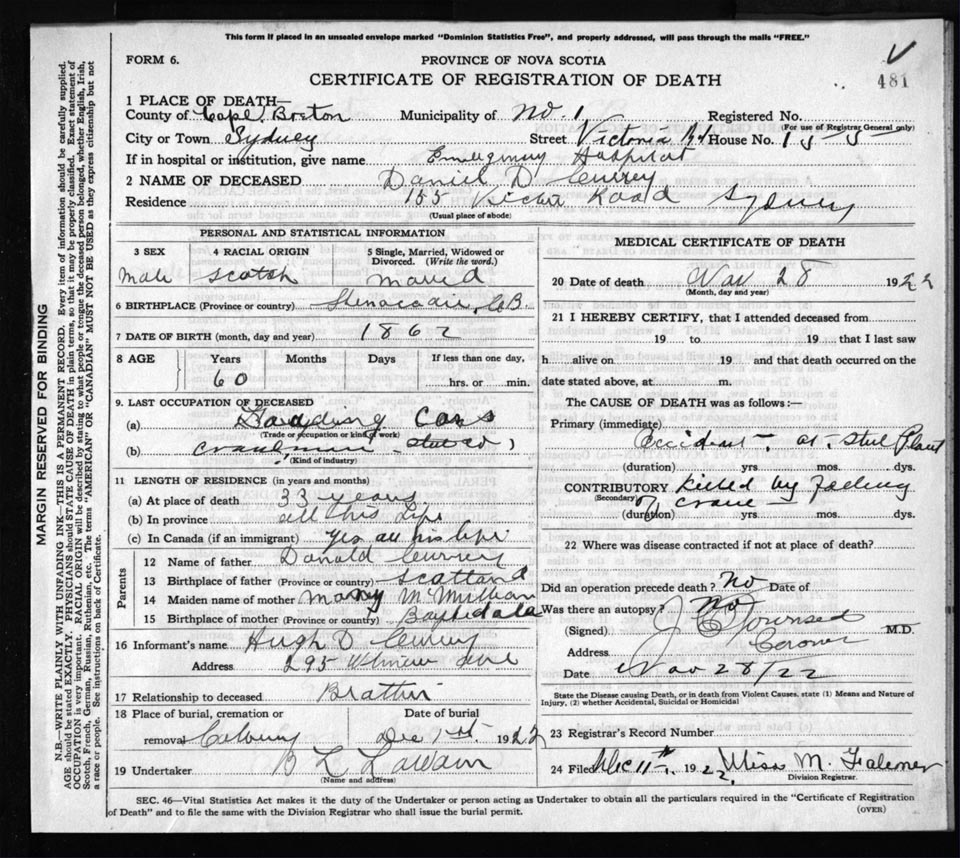 This form if placed in an unsealed envelope marked "Dominion Statistics Free", and properly addressed, will pass through the mails "FREE."
FORM 6.
PROVINCE OF NOVA SCOTIA
481
CERTIFICATE OF REGISTRATION OF DEATH
1 PLACE OF DEATH—
County of Cape Breton Municipality of No. 1 Registered No.
(For use of Registrar General only)
City or Town Sydney Street Victoria Rd House No. 155
If in hospital or institution, give name Emergency Hospital
2 NAME OF DECEASED Daniel D Currey
Residence 155 Victoria Road Sydney
(Usual place of abode)
PERSONAL AND STATISTICAL INFORMATION
3 SEX 4 RACIAL ORIGIN 5 Single, Married, Widowed or Divorced. (Write the word.)
Male Scotch Married
6 BIRTHPLACE (Province or country) C.B.
7 DATE OF BIRTH (month, day and year) 1862
8 AGE Years Months Days If less than one day,
60 hrs. or min.
9. LAST OCCUPATION OF DECEASED
(a) Loading Cars
(Trade or occupation or kind of work)
(b) Steel Co
(Kind of industry)
11 LENGTH OF RESIDENCE (in years and months)
(a) At place of death 33 years
(b) In province all this life
(c) In Canada (if an immigrant) yes all his life
Parents
12 Name of father Donald Currey
13 Birthplace of father (Province or country) Scotland
14 Maiden name of mother Mary McMillan
15 Birthplace of mother (Province or country)
16 Informant's name Hugh D Currey
Address 295 Ave
17 Relationship to deceased Brother
18 Place of burial, cremation or Date of burial
removal Calvary Dec 1st. 1922
19 Undertaker B L
(Name and address)
MEDICAL CERTIFICATE OF DEATH
20 Date of death Nov 28 1922
(Month, day and year)
21 I HEREBY CERTIFY, that I attended deceased from
19 to 19 that I last saw
h alive on 19 and that death occurred on the
date stated above, at m.
The CAUSE OF DEATH was as follows:—
Primary (immediate)
Accident - at - Steel Plant
(duration) yrs. mos. dys.
CONTRIBUTORY Killed by falling
(Secondary) of crane
(duration) yrs. mos. dys.
22 Where was disease contracted if not at place of death?
Did an operation precede death? No Date of
Was there an autopsy? No
(Signed) J C Townsend M.D.
Address Coroner
Date Nov 28/22
State the Disease causing Death, or in death from Violent Causes, state (1) Means and Nature of
Injury, (2) whether Accidental, Suicidal or Homicidal
23 Registrar's Record Number
24 Filed Dec 11th. 1922, Miss M. Falconer
Division Registrar.
SEC. 46—Vital Statistics Act makes it the duty of the Undertaker or person acting as Undertaker to obtain all the particulars required in the "Certificate of Registration
of Death" and to file the same with the Division Registrar who shall issue the burial permit. (OVER)
MARGIN RESERVED FOR BINDING
N.B.—WRITE PLAINLY WITH UNFADING INK—THIS IS A PERMANENT RECORD. Every item of information should be carefully supplied.
AGE should be stated EXACTLY. PHYSICIANS should STATE CAUSE OF DEATH in plain terms, so that it may be properly classified. Exact statement of
OCCUPATION is very important. RACIAL ORIGIN will be described by stating to what people or tongue the deceased person belonged, whether English, Irish,
Scotch, French, German, Russian, Ruthenian, etc. The terms "AMERICAN" OR "CANADIAN" MUST NOT BE USED as they express citizenship but not
a race or people. See instructions on back of Certificate.